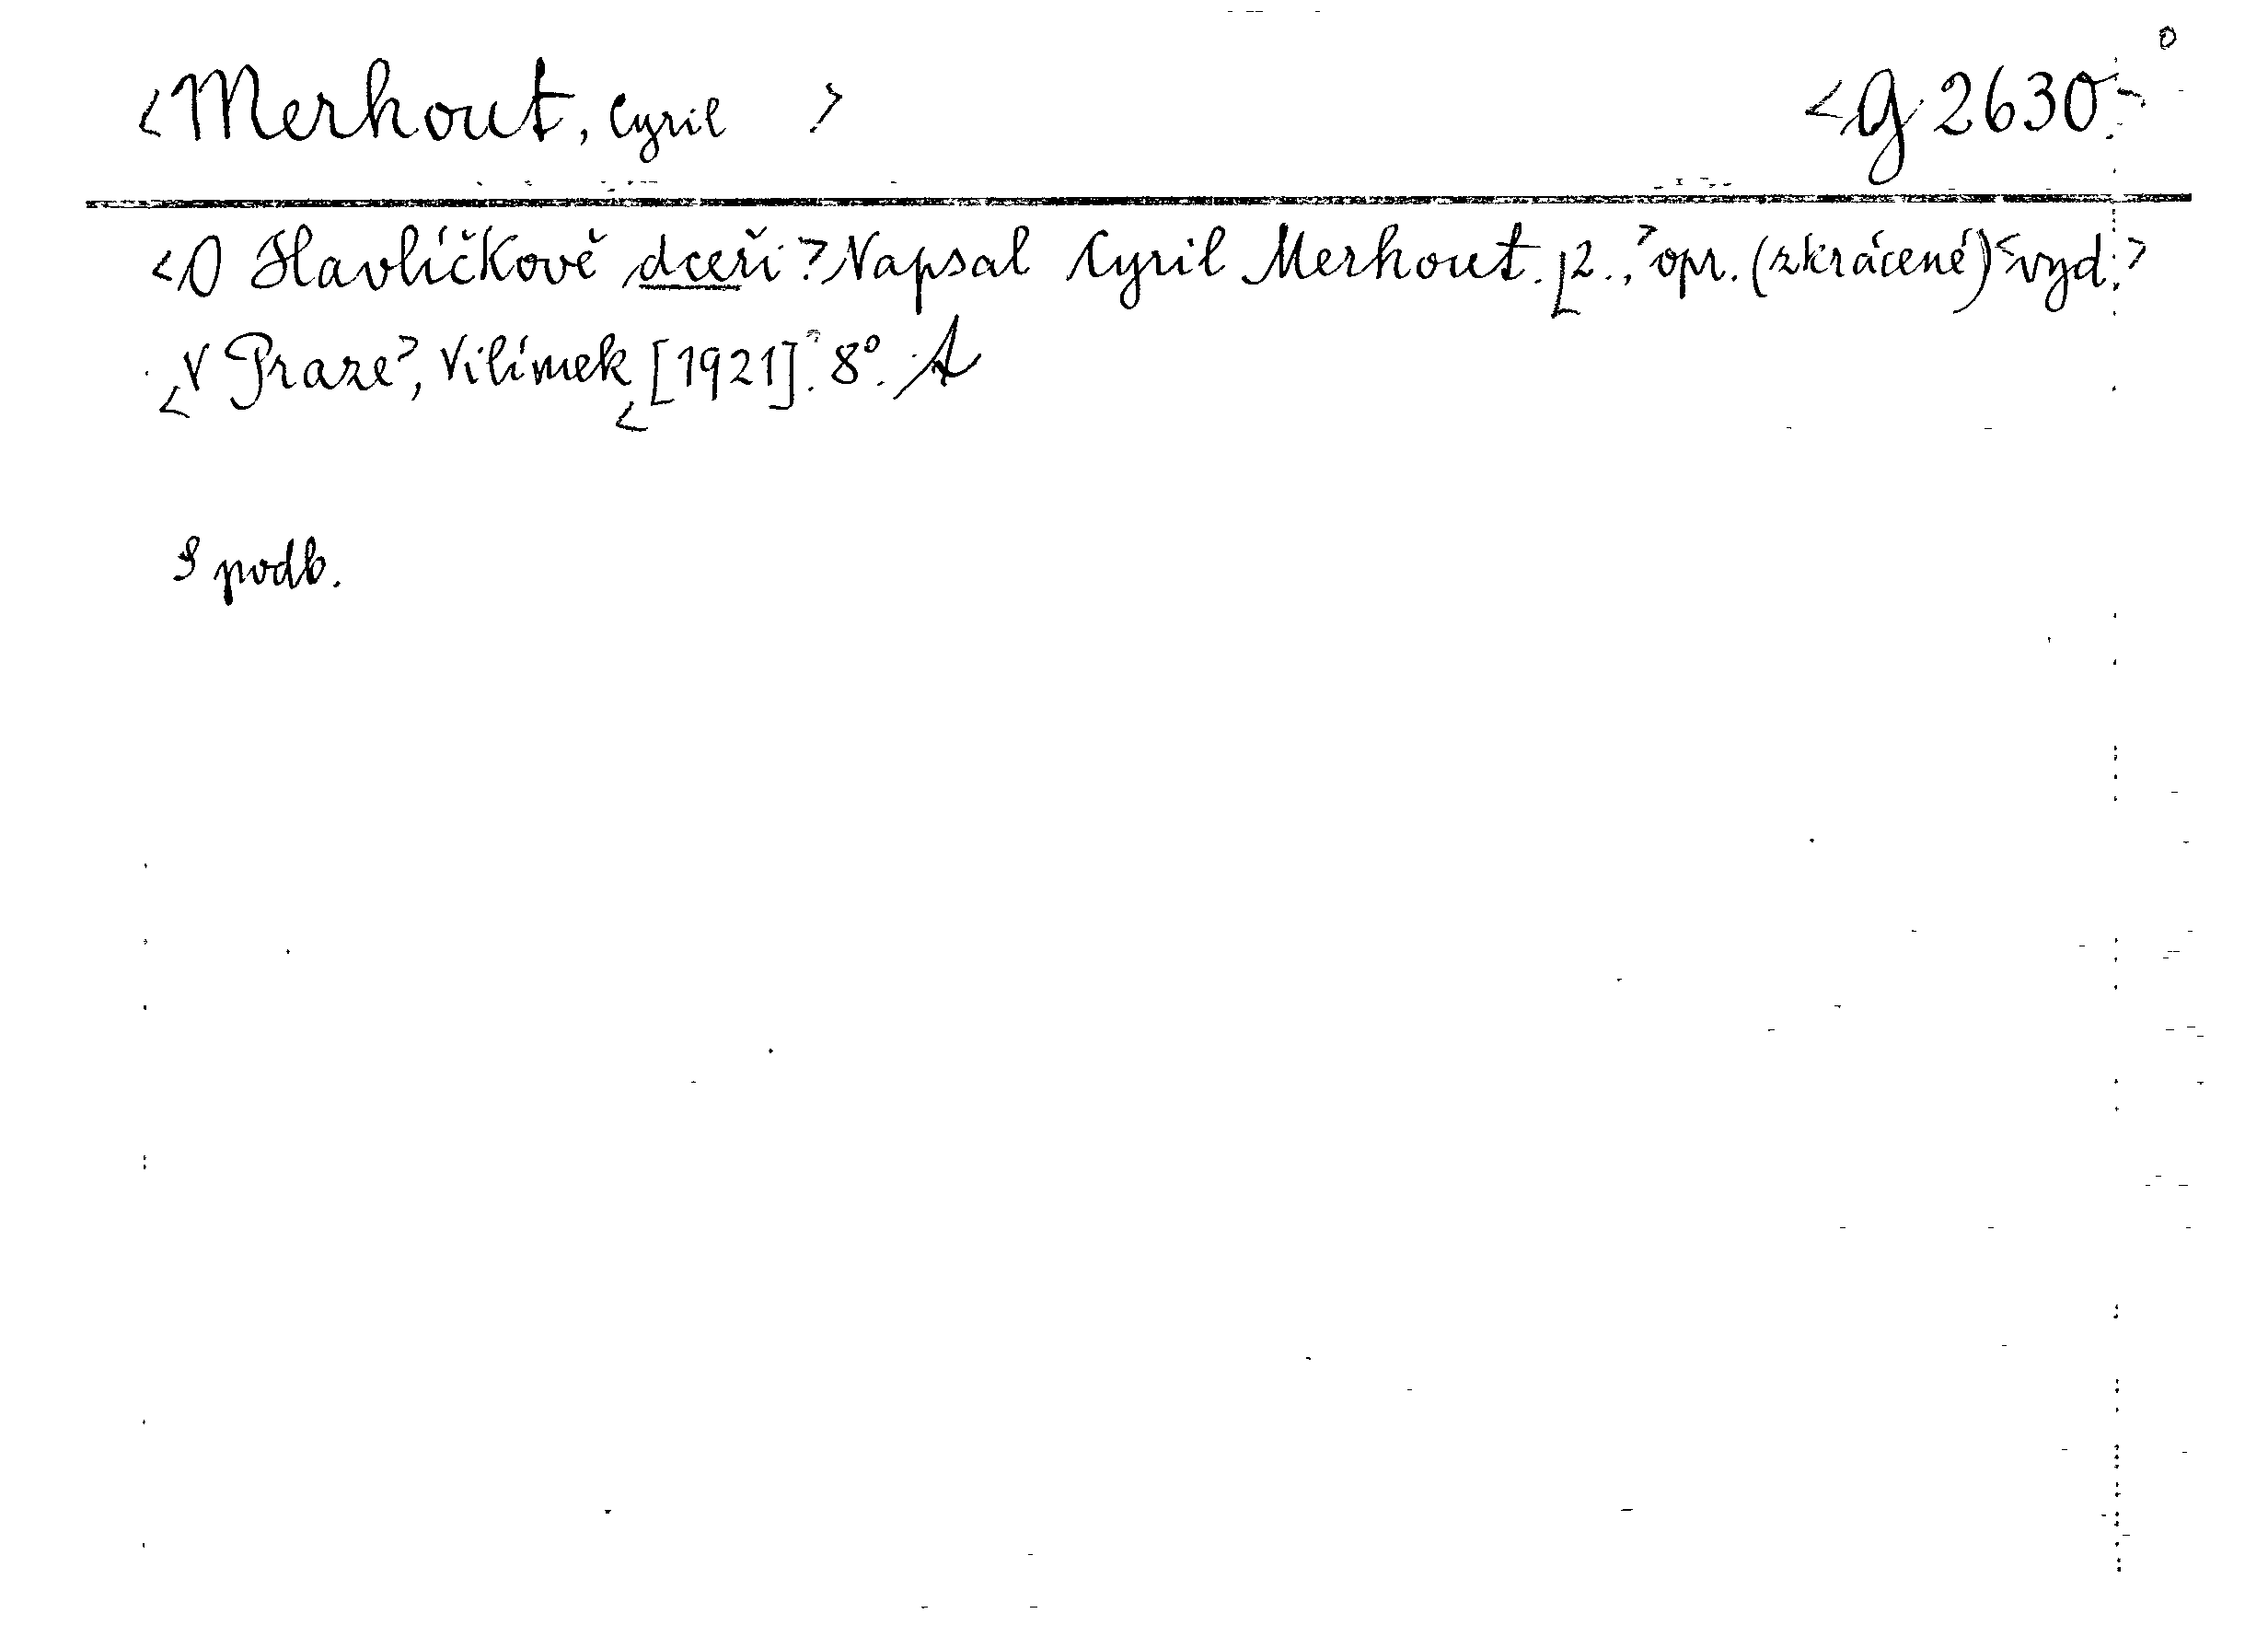 <Merhout, Cyril > <G 2630>
<O Havlíčkově dceři> Napsal Cyril Merhout. [2.,> opr. (zkrácené) <vyd.>
<V Praze>, Vilímek <[1921].> 8°. A
S podb.